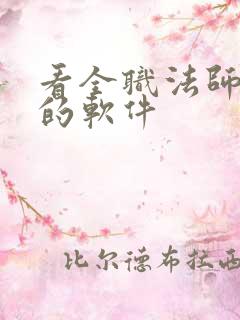 看全職法師
的軟件
比尔德布拉西